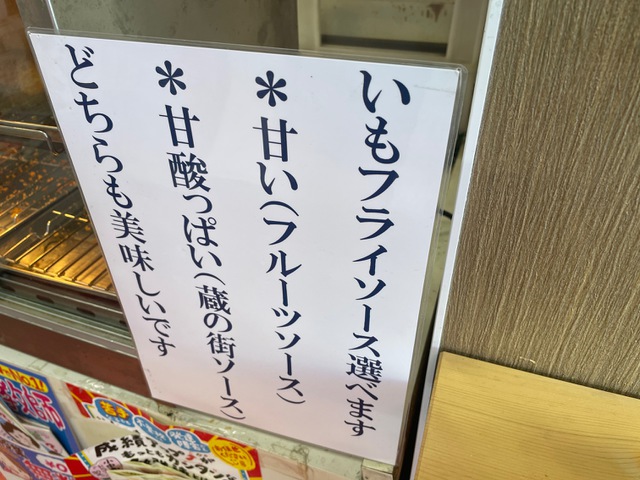 いもフライソース選べます
＊甘い(フルーツソース)
＊甘酸っぱい(蔵の街ソース)
どちらも美味しいです